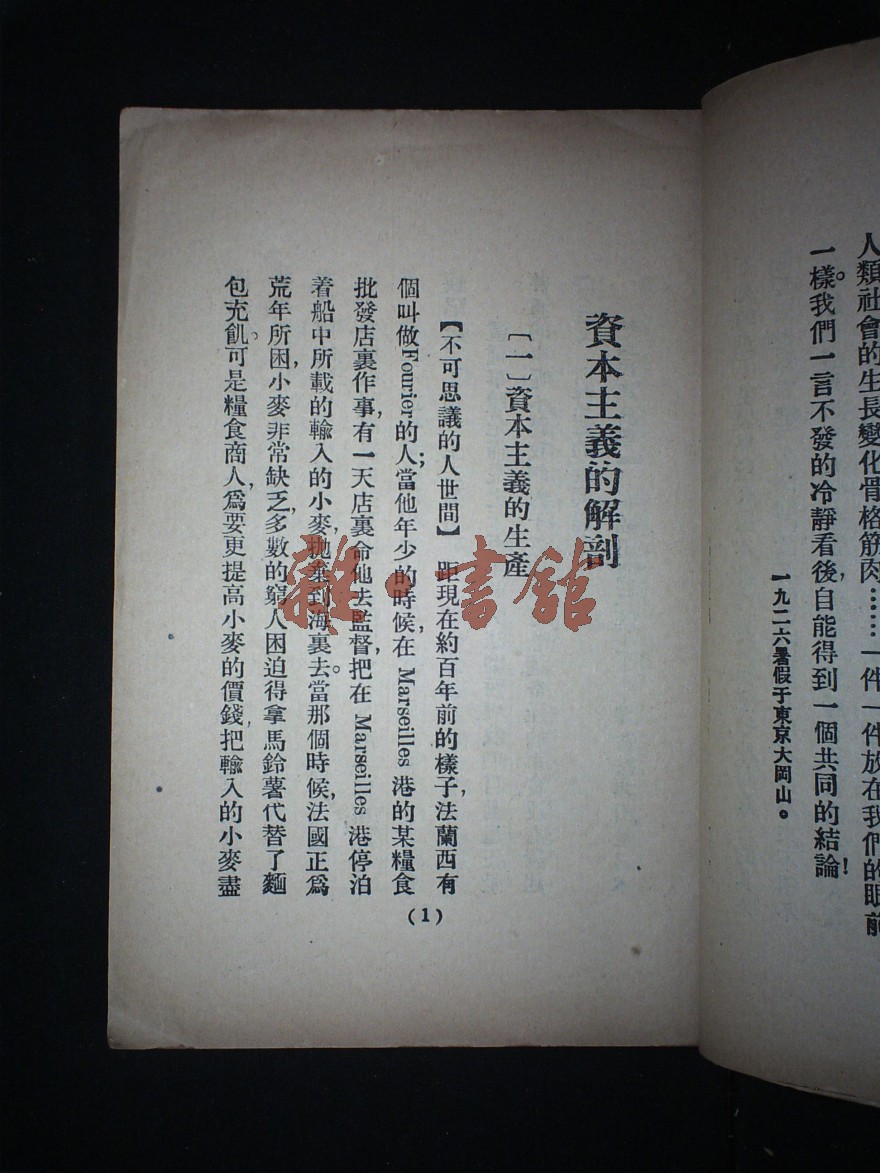 人類社會的生長變化骨格筋肉……一件一件放在我們的眼前
一樣。我們一言不發的冷靜看後,自能得到一個共同的結論!
一九二六暑假于東京大岡山。
資本主義的解剖
〔一〕資本主義的生產
【不可思議的人世間】 距現在約百年前的樣子,法蘭西有
個叫做Fourier的人;當他年少的時候,在 Marseilles 港的某糧食
批發店裏作事,有一天店裏命他去監督,把在 Marseilles 港停泊
着船中所載的輸入的小麥,拋棄到海裏去。當那個時候,法國正爲
荒年所困,小麥非常缺乏,多數的窮人困迫得拿馬鈴薯代替了麵
包充飢。可是糧食商人,爲要更提高小麥的價錢,把輸入的小麥盡
(1)
雜·書館